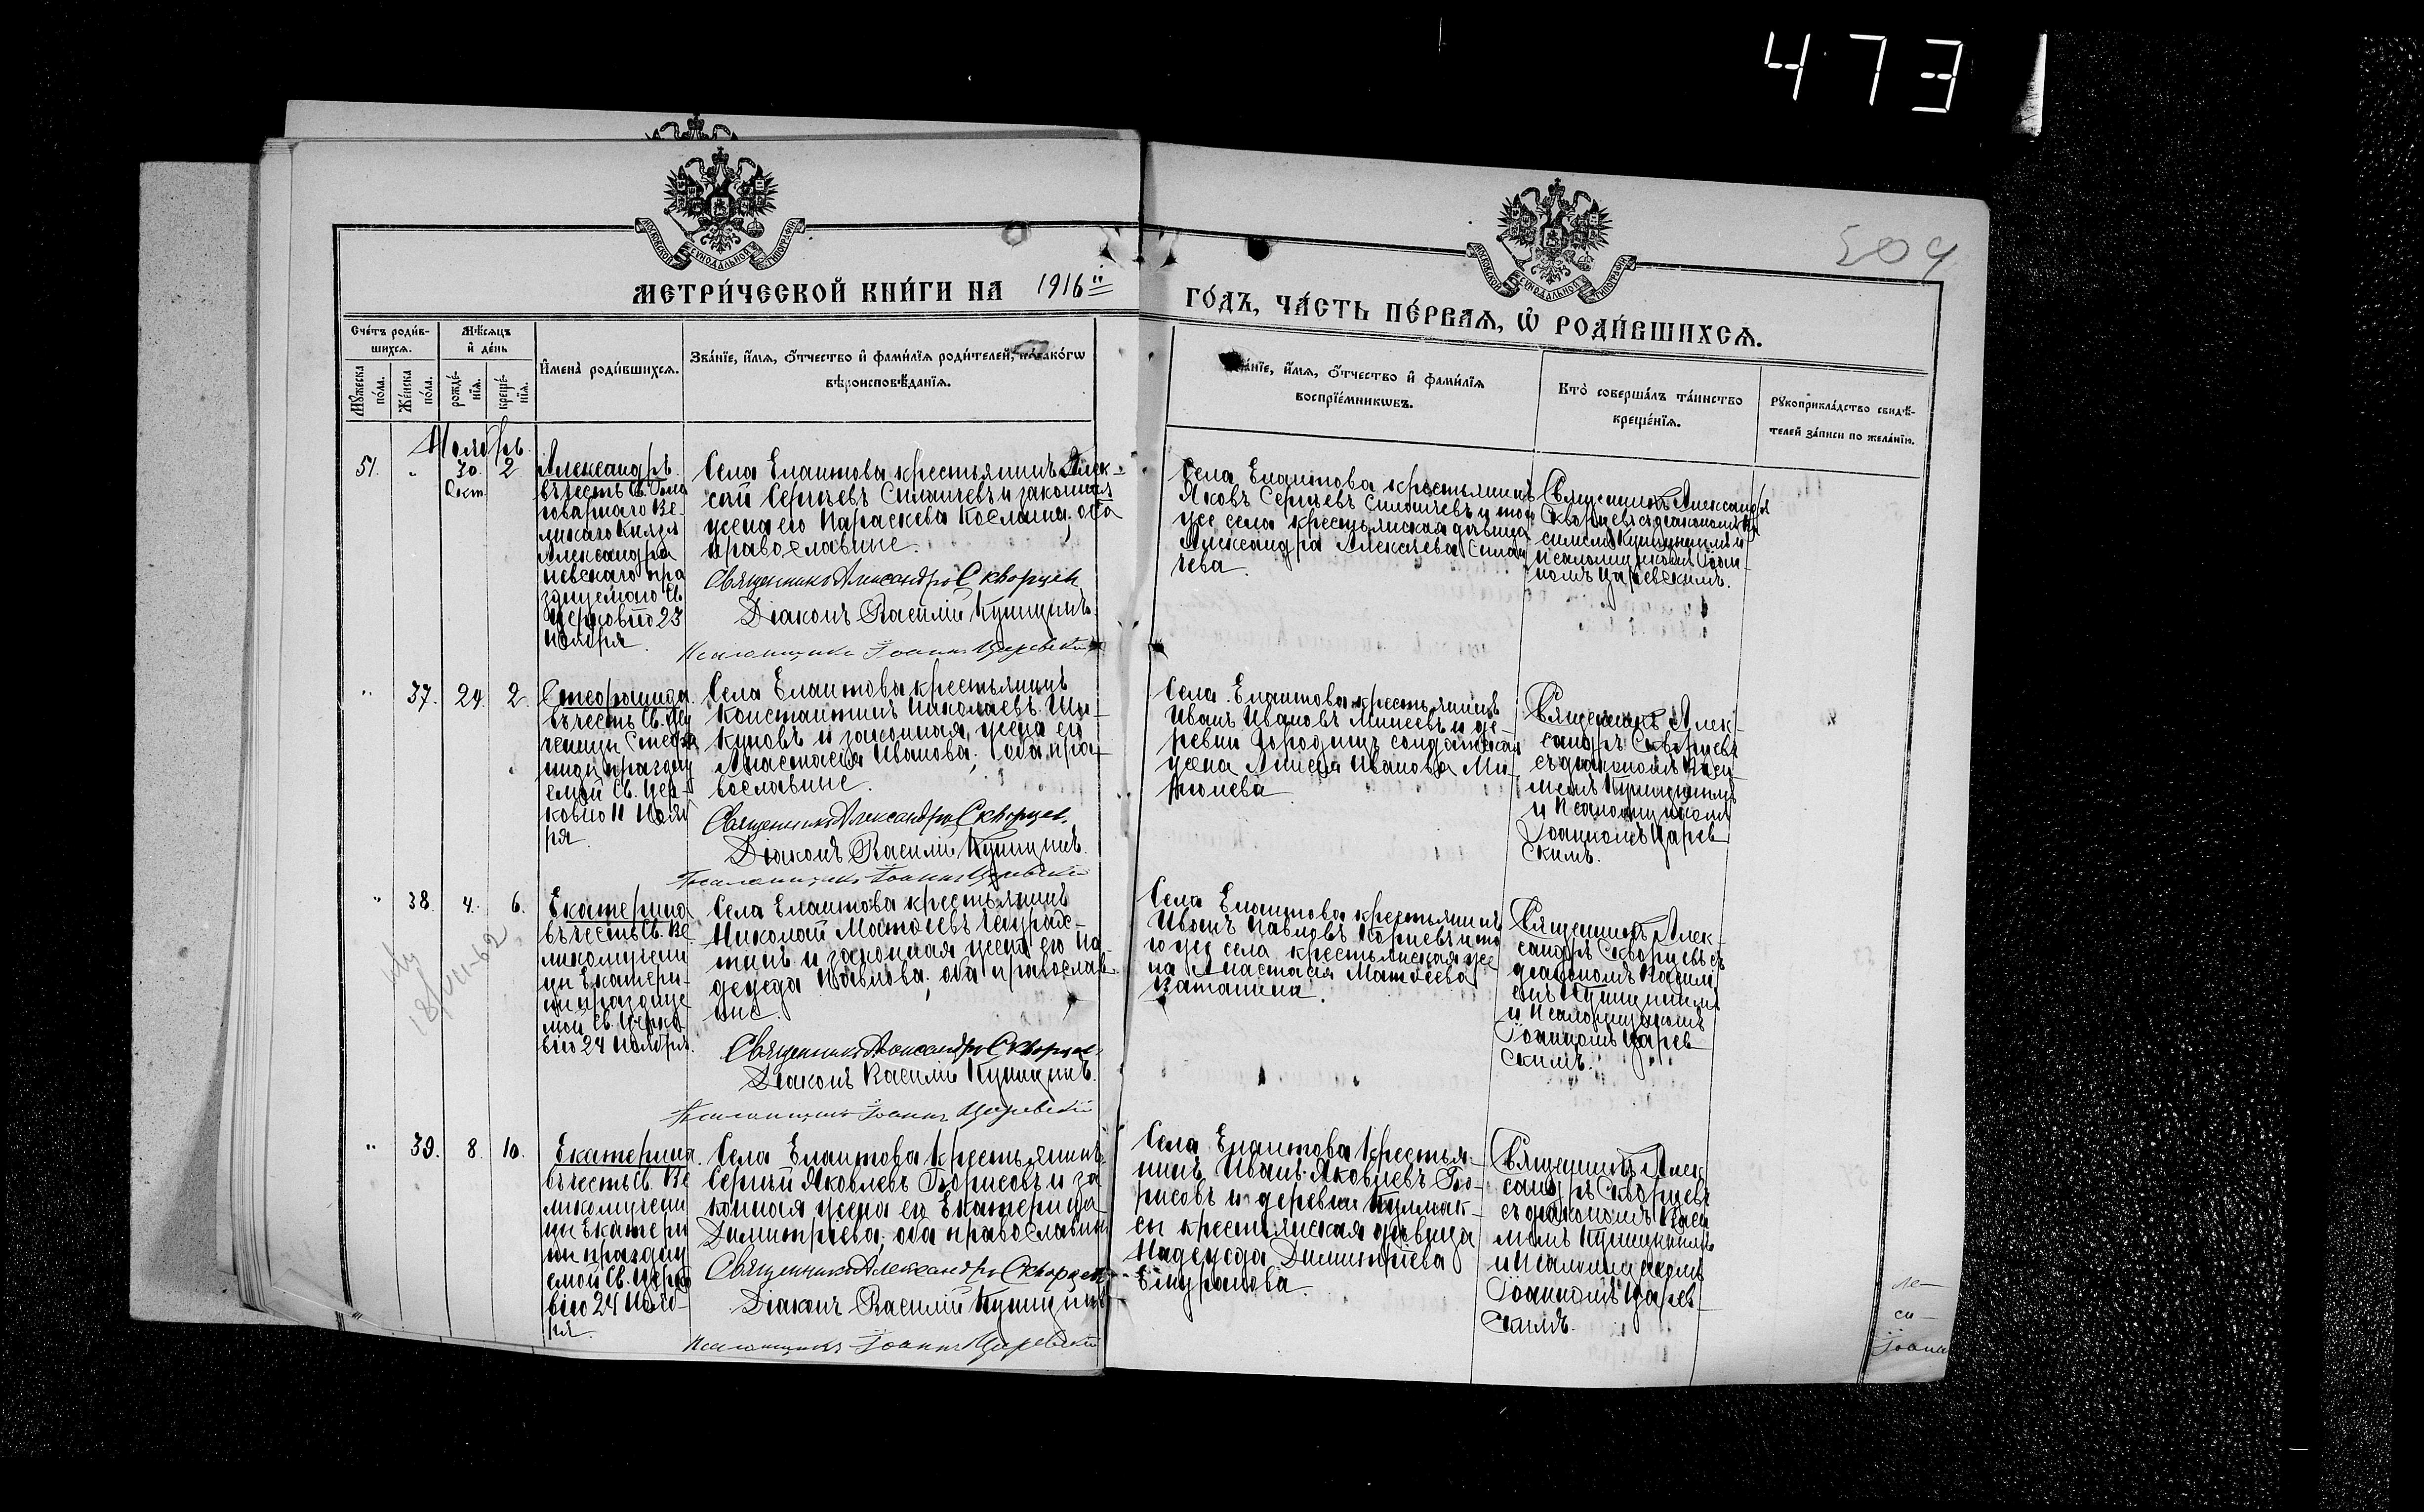 473
504
МОСКОВСКОЙ СѴНОДАЛЬНОЙ ТИПОГРАФІИ
МОСКОВСКОЙ СѴНОДАЛЬНОЙ ТИПОГРАФІИ
МЕТРИ́ЧЕСКОЙ КНИ́ГИ НА 1916й
ГО́ДЪ, ЧА́СТЬ ПЕ́РВАЯ, Ѡ҆ РОДИ́ВШИХСЯ.
Сче́тъ роди́в-
шихся.
Мѣ́сяцъ
и҆ де́нь
Мꙋ́жеска
по́ла.
Же́нска
по́ла.
рожде́-
нїя.
креще́-
нїя.
И҆мена̀ роди́вшихся.
Зва́нїе, и҆́мя, ѻ҆́тчество и҆ фами́лїя роди́телей, и҆
вѣроисповѣ́данїя.
и҆́мя, ѻ҆́тчество и҆ фами́лїя
воспрїе́мникѡвъ.
Кто̀ соверша́лъ та́инство
креще́нїя.
Рꙋкоприкла́дство свидѣ́-
телей за́писи по жела́нїю.
Ноябрь.
51. " 30 Окт. 2
Александръ
въ честь Св. Бла
говѣрнаго Ве-
ликаго Князя
Александра
Невскаго пра
зднуемаго Св.
Церковію 23
Ноября.
Села Елатова крестьянинъ Алек-
сѣй Сергѣевъ и законная
жена его Параскева Козьмина, оба
православные.
Священникъ Александръ Скворцев
Діаконъ Василій Куницынъ.
Псаломщикъ Іоаннъ Царевскій
Села Елатова крестьянинъ
Яковъ Сергѣевъ и того
же села крестьянская дѣвица
Александра Алексѣева
Священникъ Александръ
Скворцевъ съ діакономъ Ва
силіемъ Куницынымъ и
псаломщикомъ Іоан-
номъ Царевскимъ.
" 37. 24. 2.
Стефанида
въ честь Св. Му
ченицы Стефа
ниды праздну
емой Св. Цер-
ковію 11 Нояб
ря.
Села Елатова крестьянинъ
Константинъ Николаевъ
и законная жена его
Анастасія Иванова, оба пра-
вославные.
Священникъ Александръ Скворцев.
Діаконъ Василій Куницынъ.
Псаломщикъ Іоаннъ Царевскій
Села Елатова крестьянинъ
Иванъ Ивановъ Минеевъ и де-
ревни солдатская
жена Иванова
Священникъ Алек-
сандръ Скворцевъ
съ діакономъ Васи
ліемъ Куницынымъ
и Псаломщикомъ
Іоанномъ Царев
скимъ.
" 38. 4. 6.
Екатерина
въ честь Св. Ве
ликомучени
цы Екатери-
ны праздну
мой Св. Церко
вію 24 Ноября.
Села Елатова крестьянинъ
Николай
и законная жена его На-
дежда Павлова, оба православ
ные.
Священникъ Александръ Скворцев
Діаконъ Василій Куницынъ.
Псаломщикъ Іоаннъ Царевскій
Села Елатова крестьянинъ
Иванъ Павловъ и то
го же села крестьянская же
на Анастасія Матвеева
Священникъ Алек-
сандръ Скворцевъ съ
діакономъ Васили
емъ Куницынымъ
и Псаломщикомъ
Іоанномъ Царев
скимъ.
" 39. 8. 10.
Екатерина
въ честь Св. Ве
ликомучени
цы Екатери
ны праздну
емой Св. Церко
вію 24 Нояб-
ря.
Села Елатова крестьянинъ
Сергій Яковлевъ Борисовъ и за
конная жена его Екатерина
Димитріева, оба православные
Священникъ Александръ Скворцев
Діаконъ Василій Куницынъ
Псаломщикъ Іоаннъ Царевскій
Села Елатова крестья-
нинъ Иванъ Яковлевъ Бо-
рисовъ и деревни
крестьянская дѣвица
Надежда Димитріева
Священникъ Алек
сандръ Скворцевъ
съ діакономъ Васи
ліемъ Куницынымъ
и Псаломщикомъ
Іоанномъ Царев-
скимъ.